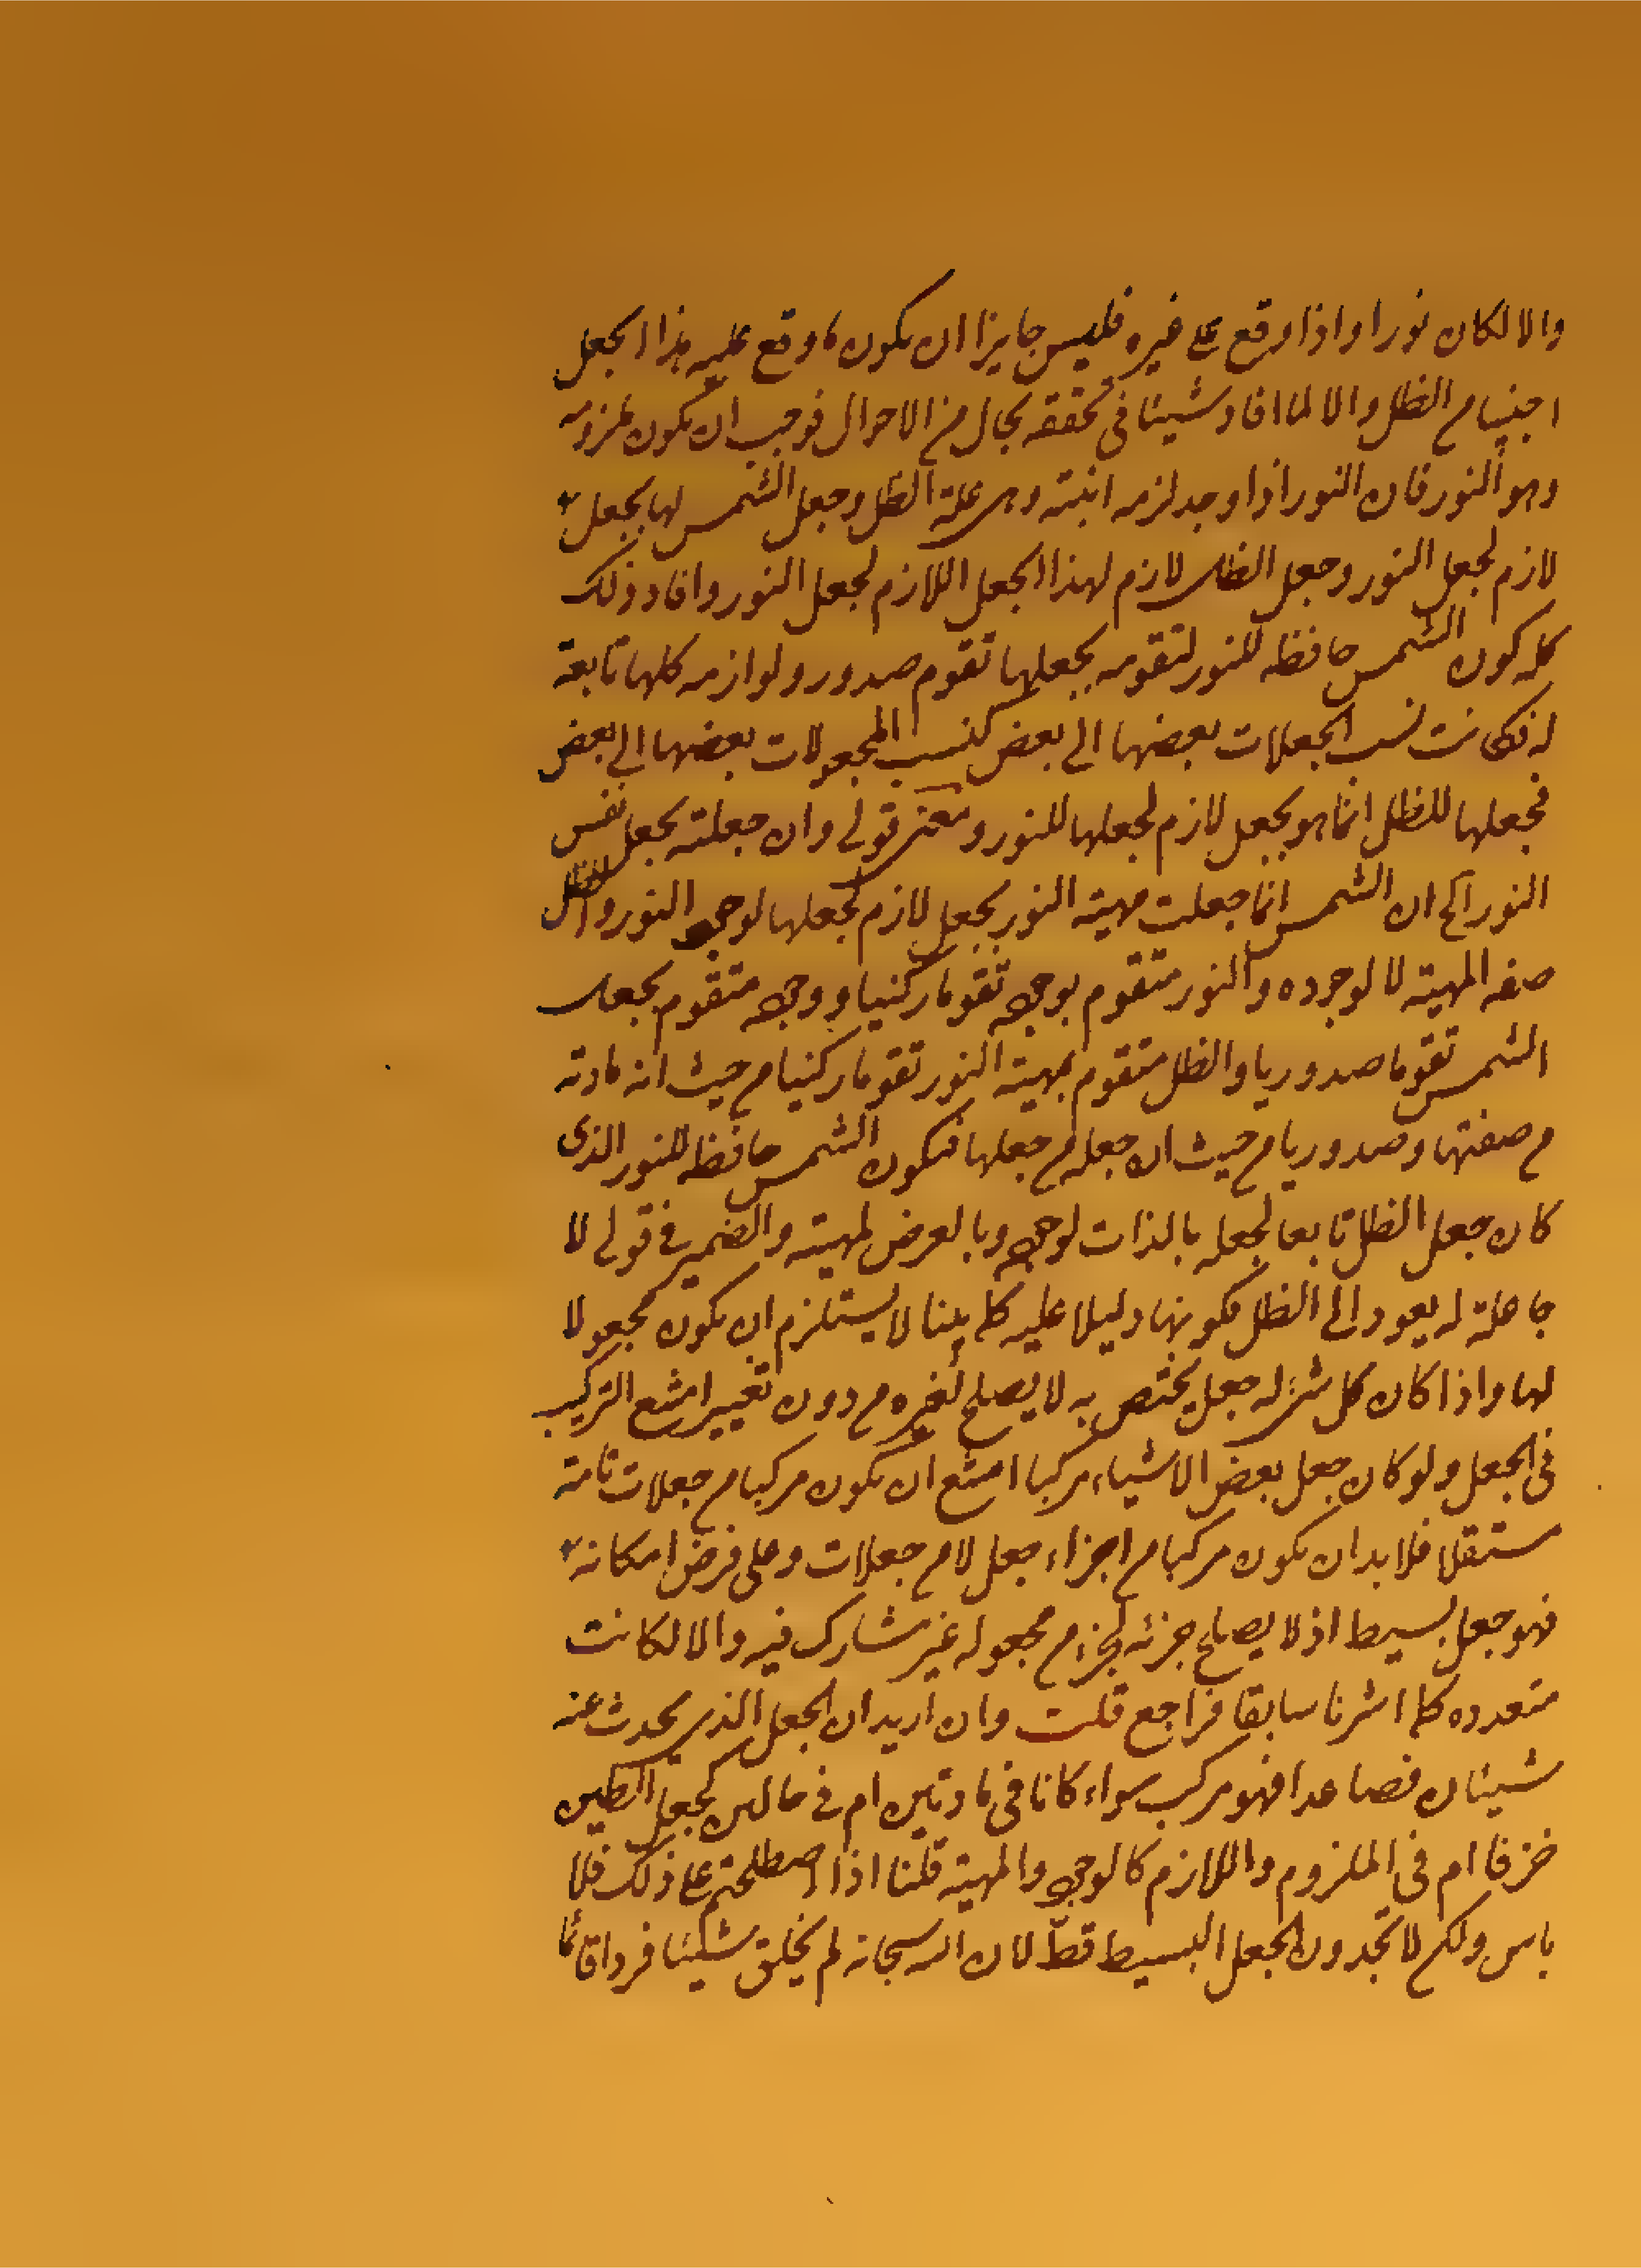 والا لكان نورا واذا وقع على غيره فليس جايزا ان يكون ما وقع عليه هذا الجعل
اجنبيا من الظل والا لما افاد شيئا في تحققه بحال من الاحوال فوجب ان يكون ملزومه
وهو النور فان النور اذا وجد لزمه انيته وهى علة الظل وجعل الشمس لها بجعل
لازم لجعل النور وجعل الظل لازم لهذا الجعل اللازم لجعل النور وافاد ذلك
كله كون الشمس حافظه للنور لتقومه بجعلها تقوم صدور ولوازمه كلها تابعة
له فكانت نسب الجعلات بعضها الى بعض كنسب المجعولات بعضها الى بعض
فجعلها للظل انما هو بجعل لازم لجعلها للنور ومعنى قولى وان جعلته بجعل نفس
النور الخ ان الشمس انما جعلت مهية النور بجعل لازم لجعلها لوجود النور والظل
صفه المهية لا لوجوده والنور متقوم بوجوده تقوما ركنيا ووجوده متقوم بجعل
الشمس تقوما صدوريا والظل متقوم بمهية النور تقوما ركنيا من حيث انه مادته
من صفتها وصدوريا من حيث ان جعله من جعلها فتكون الشمس حافظه للنور الذى
كان جعل الظل تابعا لجعله بالذات لوجوده وبالعرض لمهيته والضمير في قولى لا
جاعلة له يعود الى الظل فكونها دليلا عليه كما بينا لا يستلزم ان يكون مجعولا
لها واذا كان كل شئ له جعل يختص به لا يصلح لغيره من دون تغيير امتنع التركيب
في الجعل ولو كان جعل بعض الاشياء مركبا امتنع ان يكون مركبا من جعلات تامة
مستقلا فلا بد ان يكون مركبا من اجزاء جعل لا من جعلات وعلى فرض امكانه
فهو جعل بسيط اذ لا يصلح جزئه لجزء من مجعوله غير مشارك فيه والا لكانت
متعدده كما اشرنا سابقا فراجع قلت وان اريد ان الجعل الذى يحدث عنه
شيئان فصاعدا فهو مركب سواء كانا في مادتين ام في حالين كجعل الطين
خزفا ام في الملزوم واللازم كالوجود والمهية قلنا اذا اصطلحتم على ذلك فلا
باس ولكن لا تجدون الجعل البسيط قطّ لان الله سبحانه لم يخلق شيئا فردا قائما